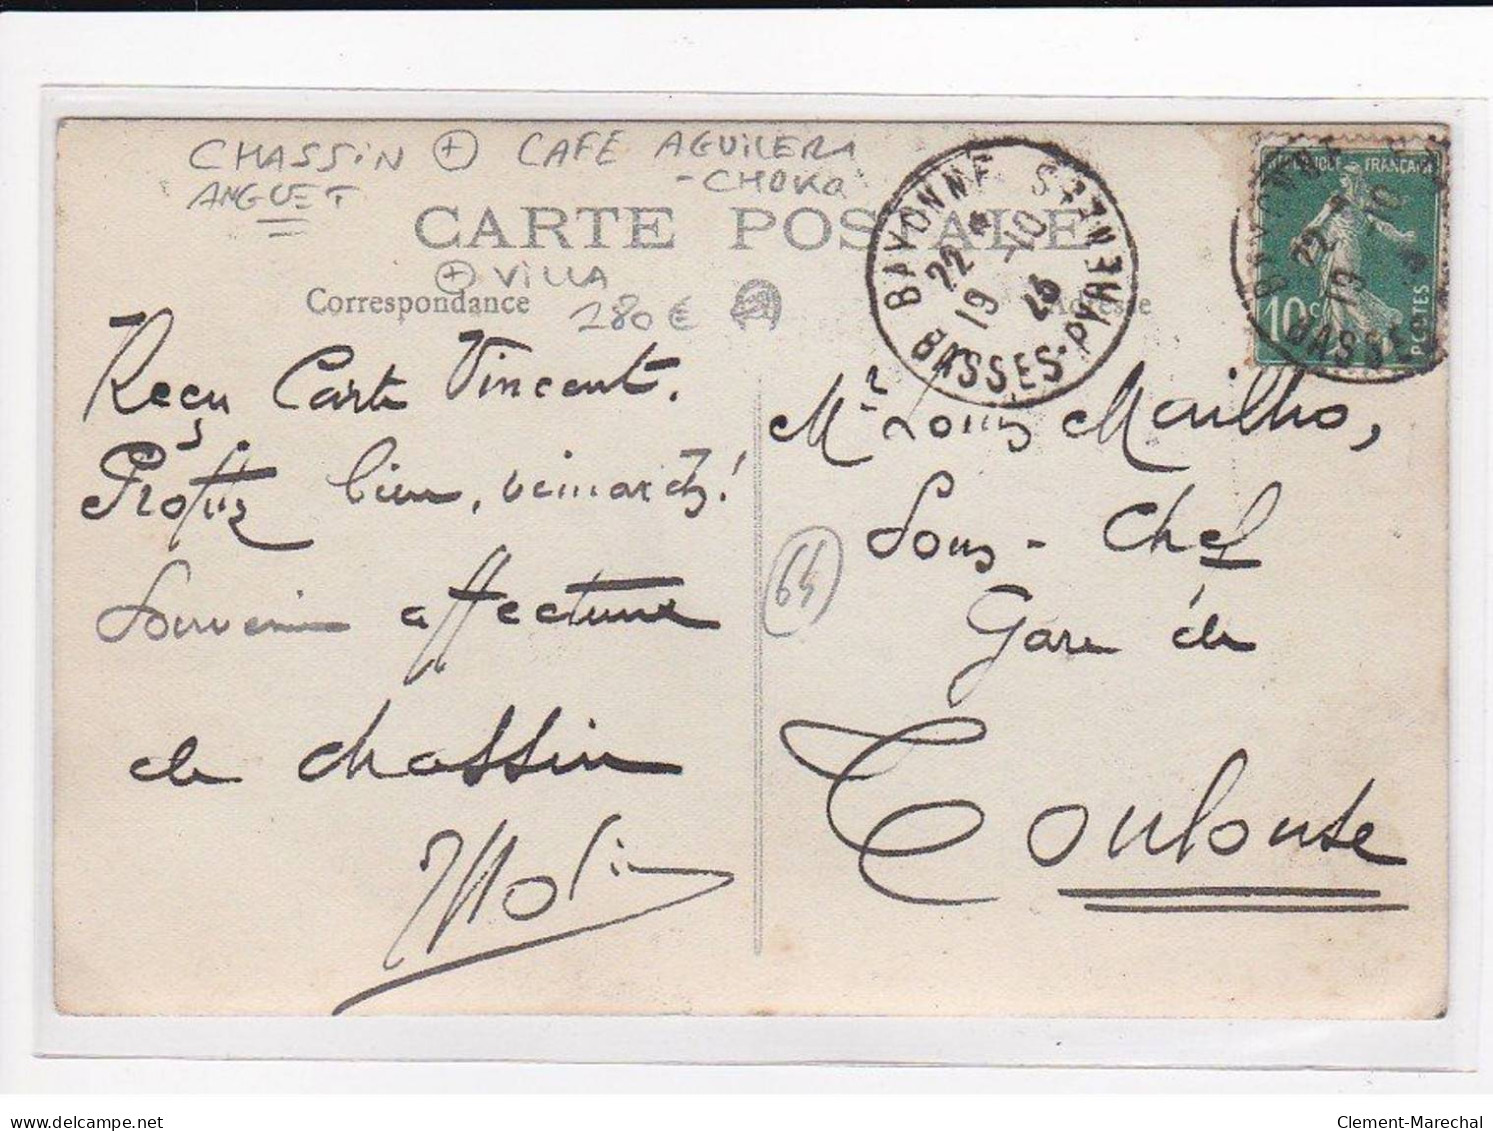 CHASSIN + CAFE AGUILERA
ANGUET - CHOKO
CARTE POSTALE
+ VILLA
Correspondance 280 € Adresse
BAYONNE St ESPRIT
22 * 19 -10
BASSES-PYRÉNÉES
RÉPUBLIQUE FRANÇAISE
10c POSTES
BASSES
Reçu Carte Vincent.
Profitez bien, veinards!
Souvenir affectueux
de Chassin
Mr Louis Mailho,
Sous-Chef
Gare de
Toulouse
64
Clement-Marechal
delcampe.net